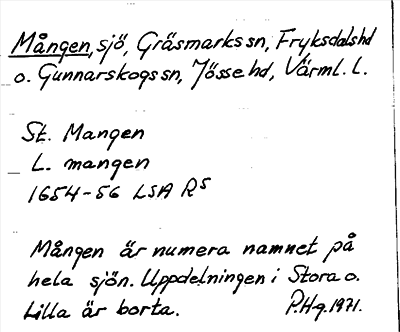 Mången, sjö, Gräsmarks sn, Fryksdals hd
o. Gunnarskogs sn, Jösse hd, Värml. L.
St. Mangen
L. mangen
1654-56 LSA R5
Mången är numera namnet på
hela sjön. Uppdelningen i Stora o.
Lilla är borta. P.Hg. 1971.